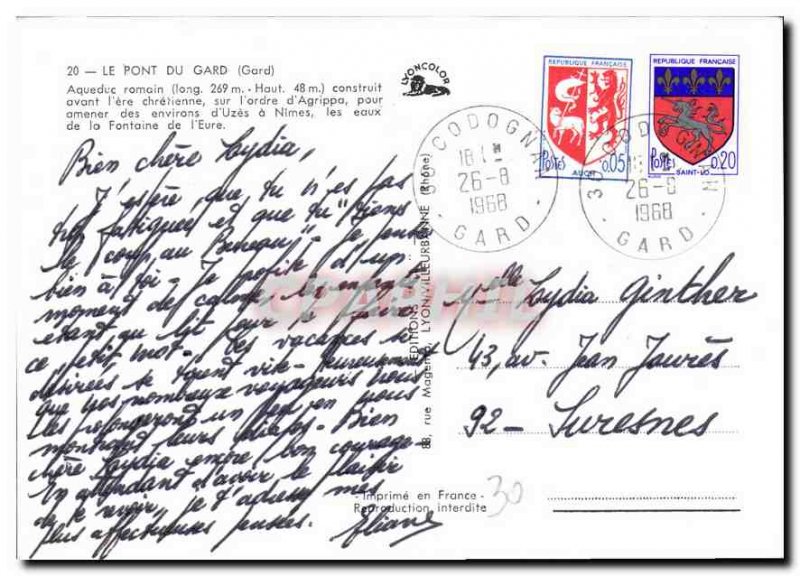 20 — LE PONT DU GARD (Gard)
Aqueduc romain (long. 269 m. - Haut. 48 m.) construit
avant l'ère chrétienne, sur l'ordre d'Agrippa, pour
amener des environs d'Uzès à Nîmes, les eaux
de la Fontaine de l'Eure.
LYONCOLOR
REPUBLIQUE FRANÇAISE
POSTES
0,05
AUCH
REPUBLIQUE FRANÇAISE
POSTES
0,20
SAINT-LO
30 CODOGNAN
18 H
26-8
1968
GARD
30 CODOGNAN
18 H
26-8
1968
GARD
Bien chère Lydia,
J'espère que tu n'es pas
trop fatiguée et que tu "tiens
le coup" au Bureau - Je pense
bien à toi - Je profite d'un
moment de calme, les enfants
étant au lit pour te faire
ce petit mot - Les vacances si
désirées se sauvent vite - heureusement
que nos nombreux voyageurs nous
les prolongeront un peu en nous
montrant leurs diapos - Bien
chère Lydia encore bon courage -
En attendant d'avoir le plaisir
de te revoir je t'adresse mes
plus affectueuses pensées.
Eliane
EDITIONS
88, rue Magenta, LYON-VILLEURBANNE (Rhône)
Melle Lydia Ginther
43, av. Jean Jaurès
92 - Suresnes
- Imprimé en France -
Reproduction interdite
30